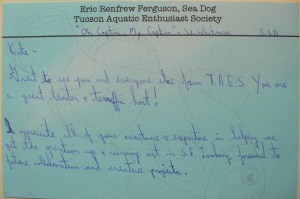 Eric Renfrew Ferguson, Sea Dog
Tucson Aquatic Enthusiast Society
"Oh Captain, My Captain" - W. Whitman
Kate -
Great to see you and everyone else from T.A.E.S. You are
a great leader + terriffic host!
I appreciate all of your assistance + expertise in helping us
get the operation up + running out in S.F. Looking forward to
future collaboration and creative projects.